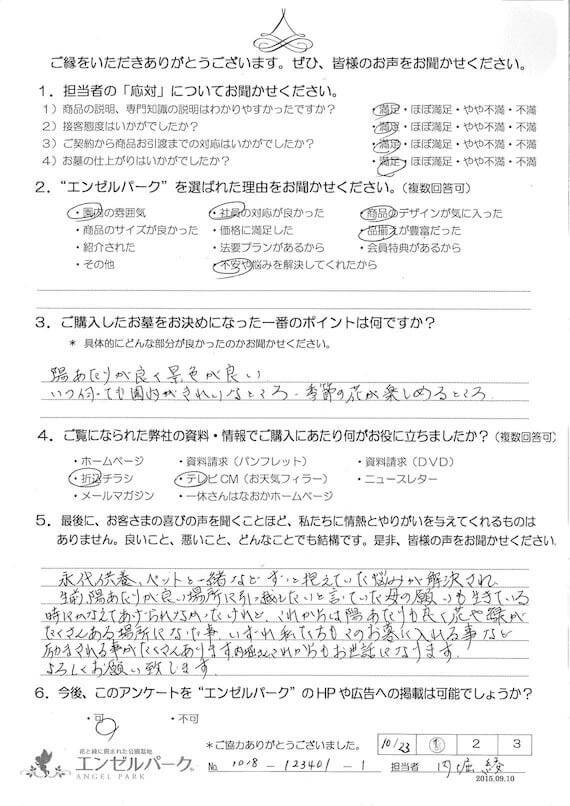 ご縁をいただきありがとうございます。ぜひ、皆様のお声をお聞かせください。
1．担当者の「応対」についてお聞かせください。
1）商品の説明、専門知識の説明はわかりやすかったですか？ ・満足・ほぼ満足・やや不満・不満
2）接客態度はいかがでしたか？ ・満足・ほぼ満足・やや不満・不満
3）ご契約から商品お引渡までの対応はいかがでしたか？ ・満足・ほぼ満足・やや不満・不満
4）お墓の仕上がりはいかがでしたか？ ・満足・ほぼ満足・やや不満・不満
2．“エンゼルパーク”を選ばれた理由をお聞かせください。（複数回答可）
・園内の雰囲気 ・社員の対応が良かった ・商品のデザインが気に入った
・商品のサイズが良かった ・価格に満足した ・品揃えが豊富だった
・紹介された ・法要プランがあるから ・会員特典があるから
・その他 ・不安や悩みを解決してくれたから
3．ご購入したお墓をお決めになった一番のポイントは何ですか？
＊ 具体的にどんな部分が良かったのかお聞かせください。
陽あたりが良く景色が良い
いつ何ても園内がきれいなところ・季節の花が楽しめるところ
4．ご覧になられた弊社の資料・情報でご購入にあたり何がお役に立ちましたか？（複数回答可）
・ホームページ ・資料請求（パンフレット） ・資料請求（DVD）
・折込チラシ ・テレビCM（お天気フィラー） ・ニュースレター
・メールマガジン ・一休さんはなおかホームページ
5．最後に、お客さまの喜びの声を聞くことほど、私たちに情熱とやりがいを与えてくれるものは
ありません。良いこと、悪いこと、どんなことでも結構です。是非、皆様の声をお聞かせください。
永代供養、ペットと一緒など ずっと抱えていた悩みが解決され
生前、陽あたりが良い場所に引っ越したいと言っていた母の願いも生きている
時にかなえてあげられなかったけれど、これからは陽あたりも良く花や緑が
たくさんある場所になった事 いずれ私たちもこのお墓に入れる事など
励まされる事がたくさんあります 内堀さんこれからもお世話になります。
よろしくお願い致します。
6．今後、このアンケートを“エンゼルパーク”のHPや広告への掲載は可能でしょうか？
・可 ・不可
＊ご協力ありがとうございました。 10/23 ① 2 3
花と緑に囲まれた公園墓地
エンゼルパーク®
ANGEL PARK
№ 1018－123401－1 担当者 内堀 綾
2015.09.10